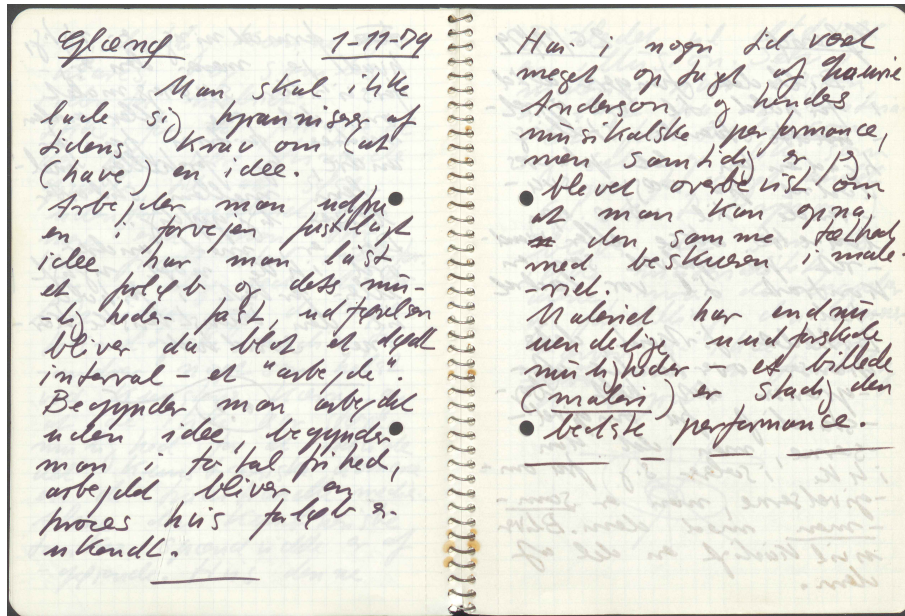 Glænø 1-11-79
Man skal ikke
lade sig tyranniserer af
tidens krav om (at
(have) en idee.
Arbejder man udfra
en i forvejen fastlagt
idee har man låst
et forløb og dets mu-
-ligheder fast, udførelsen
bliver da blot et dødt
interval - et "arbejde".
Begynder man arbejdet
uden idee, begynder
man i total frihed,
arbejdet bliver en
proces hvis forløb er
ukendt.
Har i nogen tid været
meget optaget af Laurie
Anderson og hendes
musikalske performance,
men samtidig er jeg
blevet overbevist om
at man kan opnå
den samme tæthed
med beskueren i male-
-riet.
Maleriet har endnu
uendelige uudforskede
muligheder - et billede
(maleri) er stadig den
bedste performance.